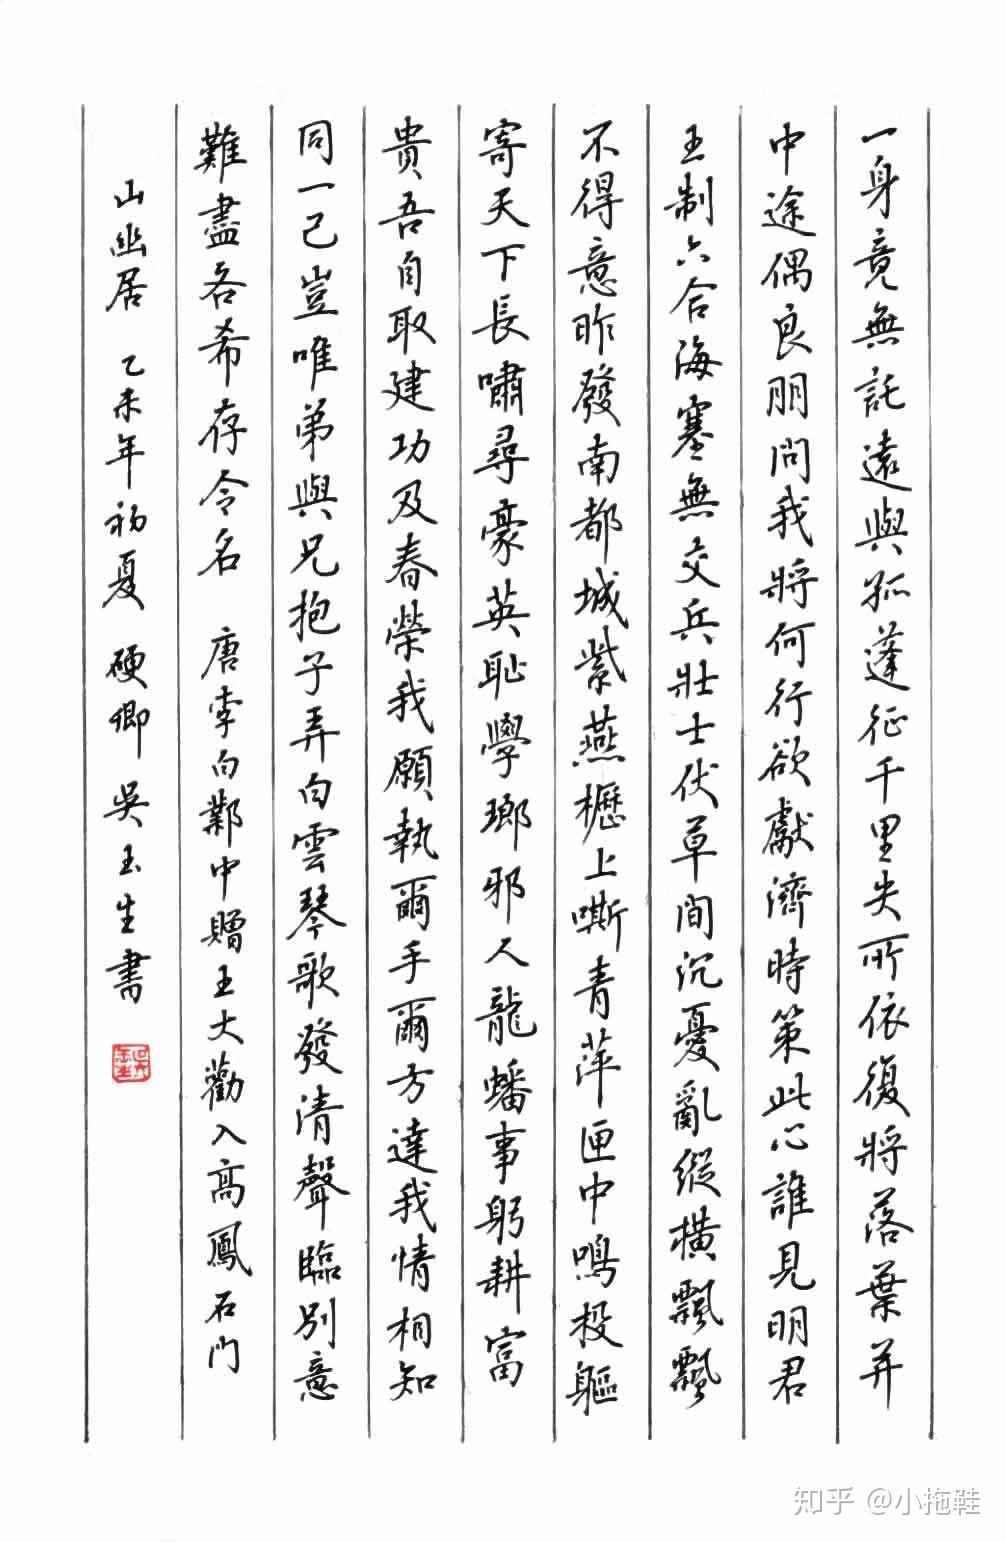 一身竟無託遠與孤蓬征千里失所依復將落葉并
中途偶良朋問我將何行欲獻濟時策此心誰見明君
王制六合海塞無交兵壯士伏草間沉憂亂縱橫飄飄
不得意昨發南都城紫燕櫪上嘶青萍匣中鳴投軀
寄天下長嘯尋豪英恥學瑯邪人龍蟠事躬耕富
貴吾自取建功及春榮我願執爾手爾方達我情相知
同一己豈唯弟與兄抱子弄白雲琴歌發清聲臨別意
難盡各希存令名 唐李白鄴中贈王大勸入高鳳石門
山幽居 乙未年初夏 硬卿 吳玉生書
知乎 @小拖鞋